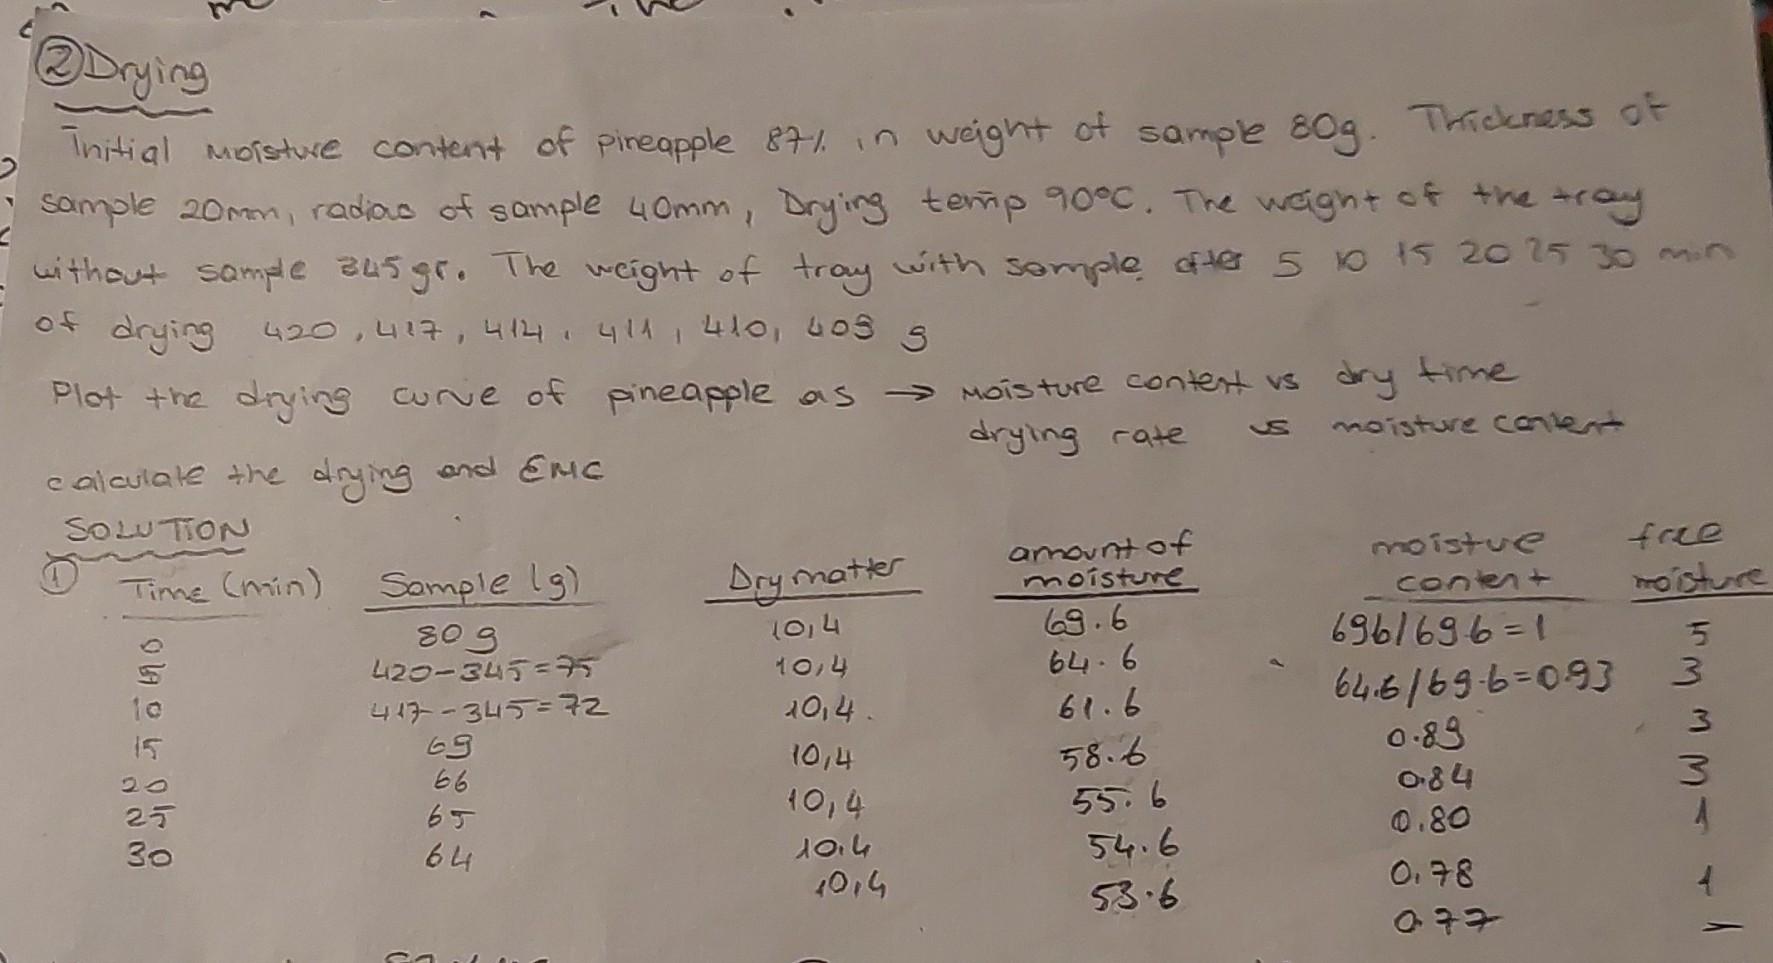 ② Drying
Initial moisture content of pineapple 87% in weight of sample 80g. Thickness of
sample 20mm, radius of sample 40mm, Drying temp 90°C. The weight of the tray
without sample 345gr. The weight of tray with sample after 5 10 15 20 25 30 min
of drying 420, 417, 414, 411, 410, 409 g
Plot the drying curve of pineapple as → Moisture content vs dry time
drying rate vs moisture content
calculate the drying and EMC
SOLUTION
① Time (min) Sample (g) Dry matter amount of moisture moisture content free moisture
0 80 g 10,4 69.6 696/69.6=1 5
5 420-345=75 10,4 64.6 64.6/69.6=0.93 3
10 417-345=72 10,4. 61.6 0.89 3
15 69 10,4 58.6 0.84 3
20 66 10,4 55.6 0.80 1
25 65 10.4 54.6 0,78 1
30 64 10,4 53.6 0.77 -